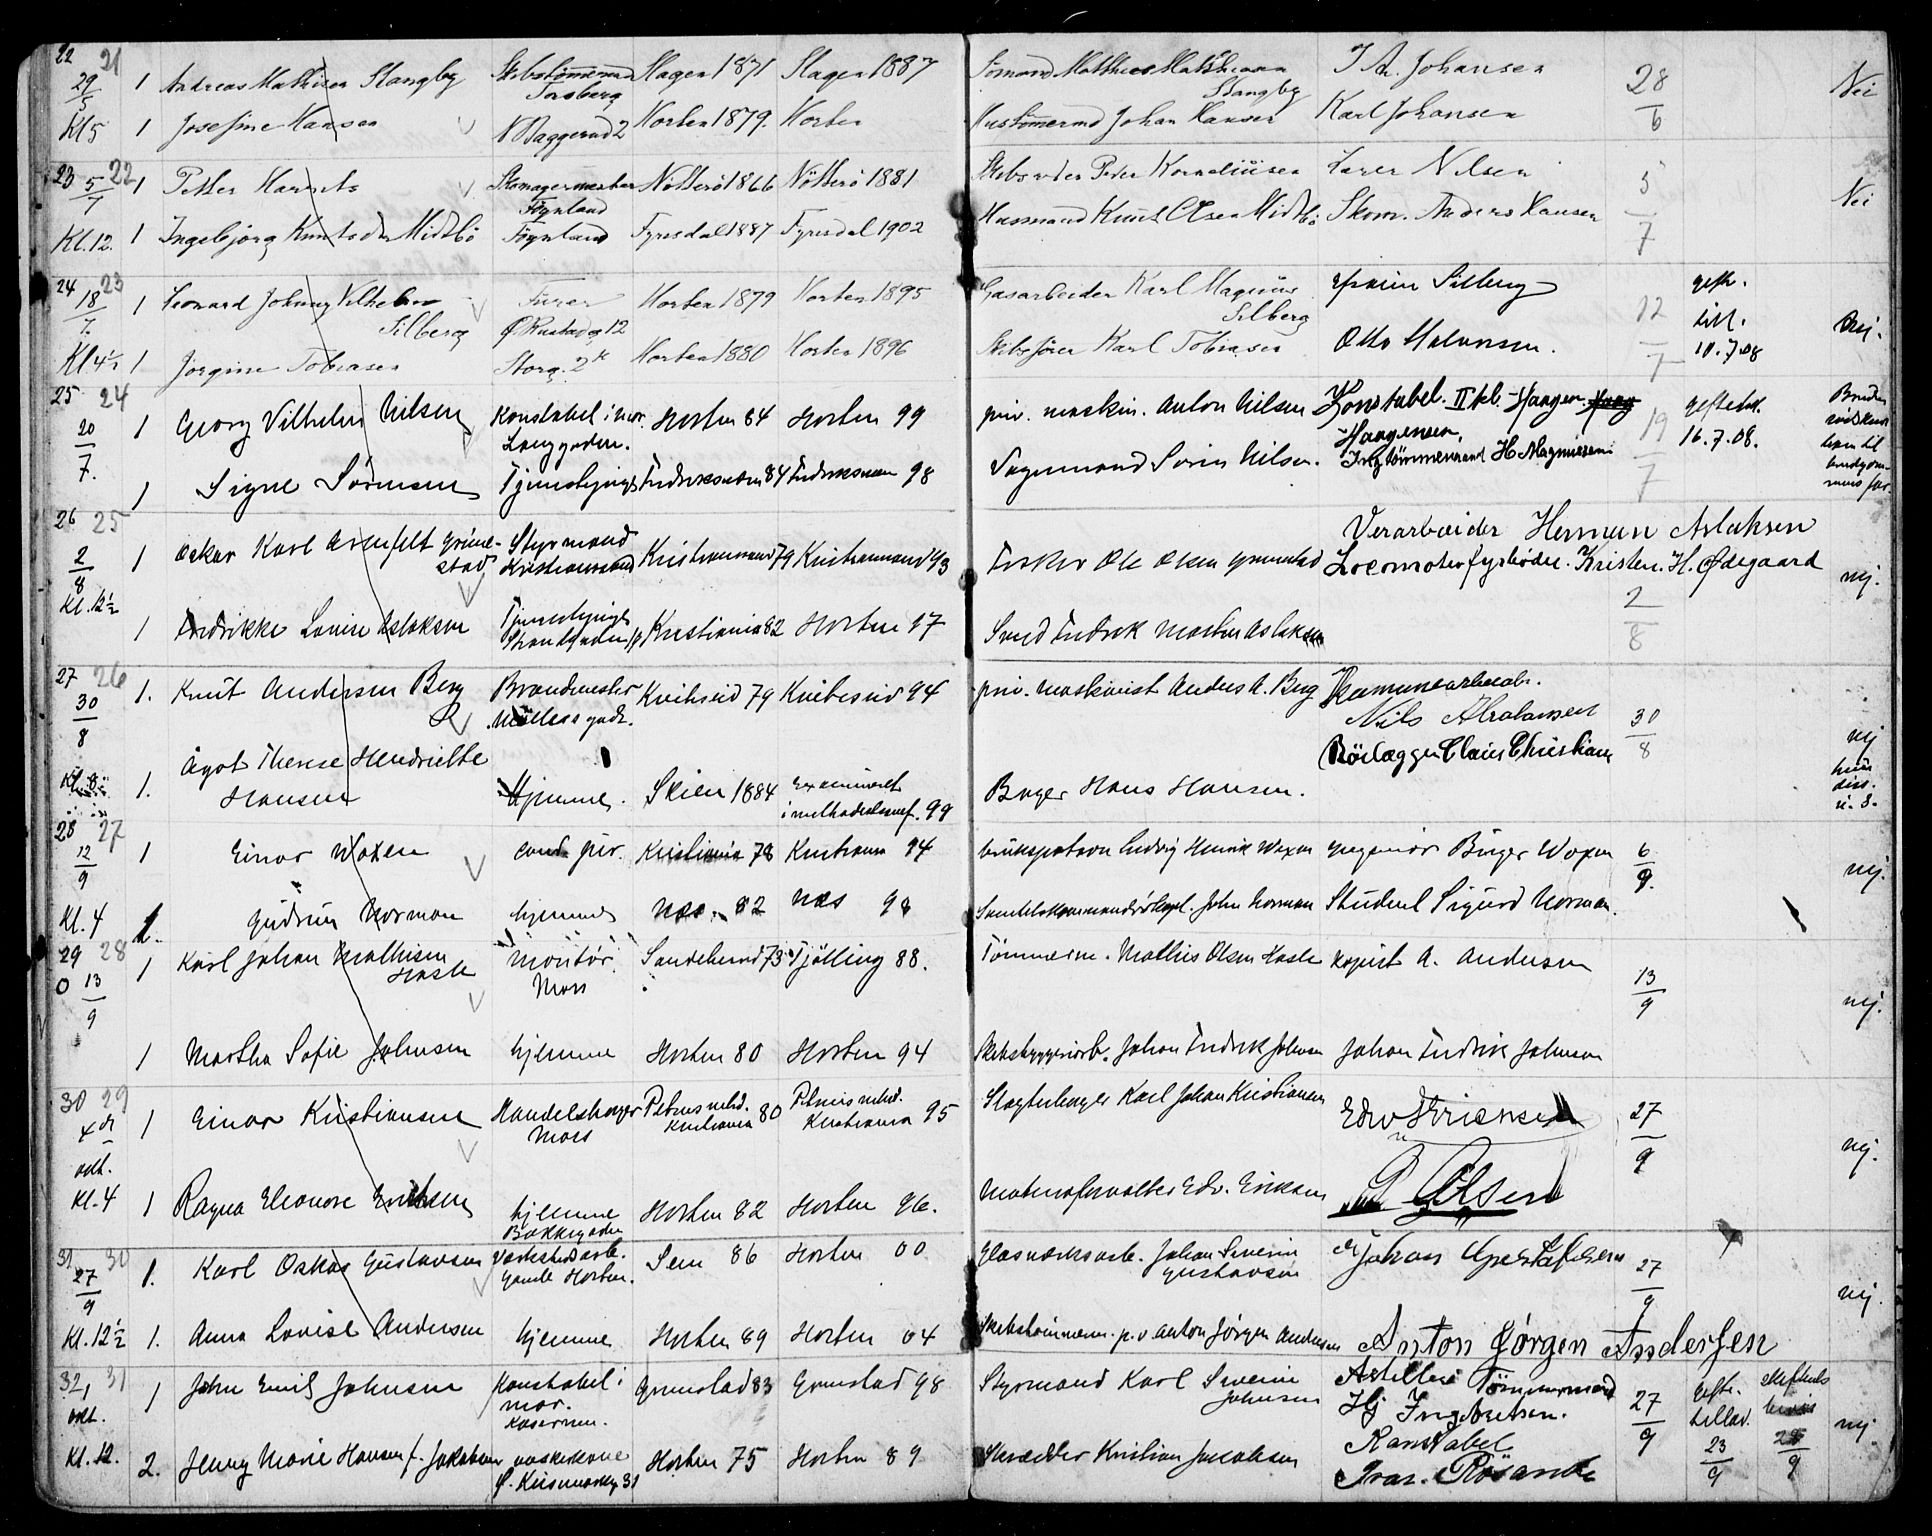 22 21 29/5 Kl 5
1 Andreas Mathisen Slangby Skibstømmermand Tønsberg Slagen 1871 Slagen 1887 Slangby I A. Johansen 28/6 Nei
1 Josefine Hansen N Baggerud 2 Horten 1879. Horten Hustømmermd Johan Hansen Karl Johansen
23 22 5/7 Kl. 12.
1 Petter Skomagermester Föynland Nötterö 1866 Nötterö 1881 Peder Korneliüsen Nilsen 5/7 Nei
1 Ingebjørg Knutsdtr Midtbö Föynland Fyresdal 1887 Fyresdal 1902 Husmand Knut Olsen Midtbö Skom. Anders Hansen
24 23 18/7. Kl 4½
1 Leonard Johnny Vilhelm Silberg Furer Ø. Rustadg 12 Horten 1879 Horten 1895 Gasarbeider Karl Magnus Silberg Efraim Silberg 12/7 gefte. till. 10.7.08 Nej.
1 Jørgine Tobiasen Storg. 2 Horten 1880 Horten 1896 Skibsfører Karl Tobiasen Otto Halvorsen.
25 24 20/7.
1 Georg Vilhelm Nilsen Konstabel i mar. Langgaden. Horten 84 Horten 99 priv. maskin. Anton Nilsen Konstabel. II kl. Haagen Haagensen, 19/7 giftetill. 16.7.08.
1 Signe Sörensen Tjenestepige Fredriksværn 84 Fredriksværn 98 Vognmand Sören Nilsen. H Magnüssen
26 25 2/8 Kl. 12½
1 Oskar Karl Arenfelt Grimstad Styrmand Kristianssand Kristianssand 79 Kristianssand 93 Fisker Ole Olsen Grimstad Verarbeider Herman Aslaksen Locomotivfyrbøder. Kristen. H. Ødegaard 2/8 nej.
1 Fredrikke Lovise Aslaksen Tjenestepige Strandgaden Kristiania 82 Horten 97 Smed Fredrik Morten Aslaksen
27 26 30/8 Kl. 8.
1. Knut Andersen Berg Brandmester Möllersgade. Kvitseid 79 Kviteseid 94 priv. maskinist Anders A. Berg Nils Abrahamsen 30/8 nej
1. Ågot Therese Hendriette Hansen Hjemme. Skien 1884 99 Bager Hans Hansen. Rörlægger Claus Christian
28 27 12/9 Kl. 4
1 Einar Waxen cand. jur. Kristiania 78 Kristiania 94 brukspatron Ludvig Henrik Waxen ingeniör Birger Waxen 6/9. nej.
1. Gudrun Norman hjemme Næs. 82 Næs 98 John Norman Student Sigurd Norman.
29 28 0 13/9
1 Karl Johan Mathisen Hasle Montör. Moss Sandeherred 73 Tjölling 88. Tömmerm. Mathis Olsen Hasle kopist A. Andersen 13/9 nej.
1 Martha Sofie Johnsen hjemme Horten 80 Horten 94 Skibsbyggeriarb. Johan Fredrik Johnsen Johan Fredrik Johnsen
30 29 4de okt. Kl. 4
1 Einar Kristiansen Handelsborger Moss Petrus mhd. Kristiania 80 Petrus mhd. Kristiania 95 Slagterborger Karl Johan Kristiansen Edv. Eriksen 27/9 nej.
1 Ragna Eleonore Eriksen hjemme Bakkegaden Horten 82 Horten 96. Materialforvalter Edv. Eriksen Olsen
31 30 27/9 Kl. 12½
1. Karl Oskar Gustavsen Verkstedarb. Gamle Horten. Sem 86 Horten 00 Glasværksarb. Johan Severin Gustavsen Johan Gustafsen 27/9 nej.
1. Anna Lovise Andersen hjemme Horten 89 Horten 04 Skibstömmerm. p.v. Anton Jörgen Andersen Anton Jørgen Andersen
32, 31 okt. Kl. 12.
1 John Emil Johnsen Konstabel i mar. Kasernen. Grimstad 83 Grimstad 98 Styrmand Karl Severin Johnsen Artilleri Tömmermand Hj Ingebretsen. 27/9 gifte. tillad. 23/9 skiftebevis 28/9 nej.
2. Jenny Marie Hansen f. Jakobsen vaskekone Horten 75 Horten 89 Skrædder Kristian Jacobsen Konstabel Ivar. Rösand